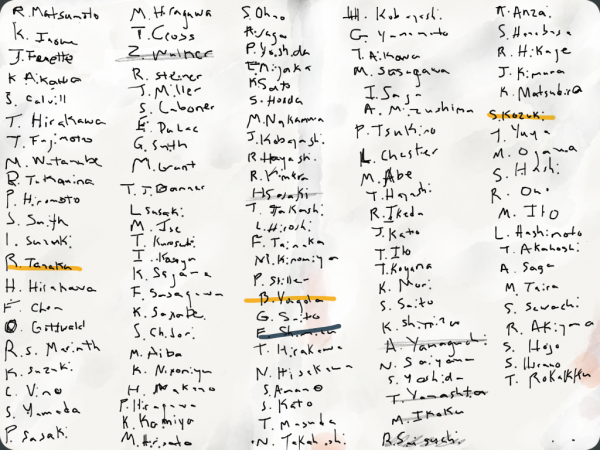 R. Matsumoto
K. Inoue
J. Fenette
K Aikawa
S. Colvill
T. Hirakawa
T. Fujimoto
M. Watanabe
P. Hiromoto
S. Smith
I. Suzuki
R. Tanaka
H. Hirakawa
F. Chen
O. Gottwald
K. Suzuki
C. Vino
S. Yamada
P. Sasaki
M. Hiragawa
T. Cross
Z. Walner
R. Steiner
J. Miller
S. Laboner
G. Smith
M. Grant
L. Sasaki
M. Ise
K. Sasabe
S. Chidori
M. Aiba
K. Nomiya
H. Nakano
P. Hiragawa
K. Kamiya
S. Ohno
P. Yoshida
K Saito
S. Honda
M. Nakamura
J. Kobayashi
R. Hayashi
H Sasaki
T. Takashi
L. Hiroshi
F. Tanaka
M. Kinomiya
P. Stiller
G. Saito
E. Shimizu
T. Hirakawa
N. Hisakawa
S. Amano
S. Kato
T. Masuda
N. Takahashi
H. Kobayashi
G. Yamamoto
T. Aikawa
M. Sasagawa
I. Saga
A. Mizushima
P. Tsukino
L. Chester
M. Abe
T. Hayashi
R. Ikeda
J. Kato
T. Ito
T. Koyama
K. Nori
S. Saito
K. Shimizu
A. Yamaguchi
N. Saiyama
S. Yoshida
T. Yamashita
M. Ikaku
R. Anzai
S. Honobasa
R. Hikage
J. Kimura
K. Matsubira
S. Kozuki
T. Yuya
M. Oyama
S. Hoshi
R. Ono
M. Ito
L. Hashimoto
T. Akahoshi
A. Saga
M. Taira
S. Sawachi
R. Akiyama
S. Hojo
S. Hirano
T. Rokakku